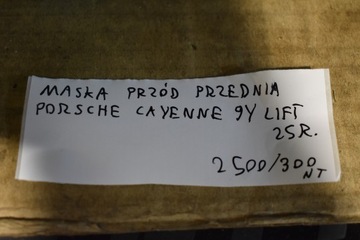 MASKA PRZÓD PRZEDNIA
PORSCHE CAYENNE 9Y LIFT
25R.
2500/300
NT